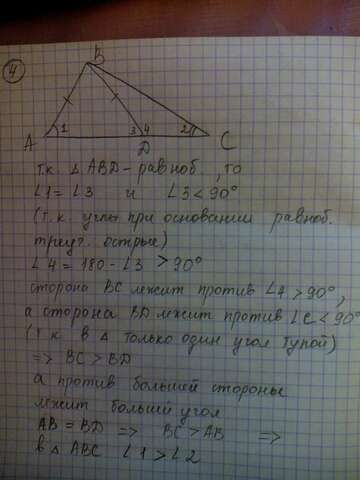 4
B
A 1 3 4 2 C
D
т.к. △ ABD - равноб., то
∠1 = ∠3 и ∠3 < 90°
(т.к. углы при основании равноб.
треуг. острые)
∠4 = 180 - ∠3 > 90°
сторона BC лежит против ∠4 > 90°,
а сторона BD лежит против ∠C < 90°
(т к в △ только один угол тупой)
=> BC > BD
а против большей стороны
лежит больший угол
AB = BD => BC > AB =>
в △ ABC ∠1 > ∠2